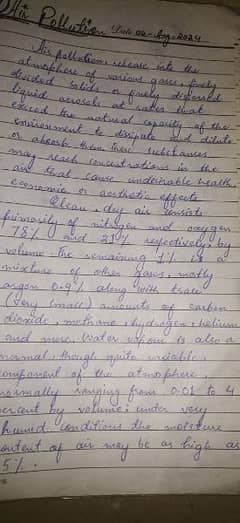 Air Pollution Date 02-Aug-2024
Air pollution release into the
atmosphere of various gases, finely
divided solids or finely dispersed
liquid aerosols at rates that
exceed the natural capacity of the
environment to dissipate and dilute
or absorb them. These substances
may reach concentrations in the
air that cause undesirable health
economic or aesthetic effects
Clean, dry air consists
primarily of nitrogen and oxygen
78% and 21% respectively, by
volume. The remaining 1% is a
mixture of other gases, mostly
argon 0.9% along with trace
(very small) amounts of carbon
dioxide, methane, hydrogen, helium
and more. Water vapour is also a
normal, though quite variable,
component of the atmosphere,
normally ranging from 0.01 to 4
ercent by volume; under very
humid conditions the moisture
ontent of air may be as high as
5%.